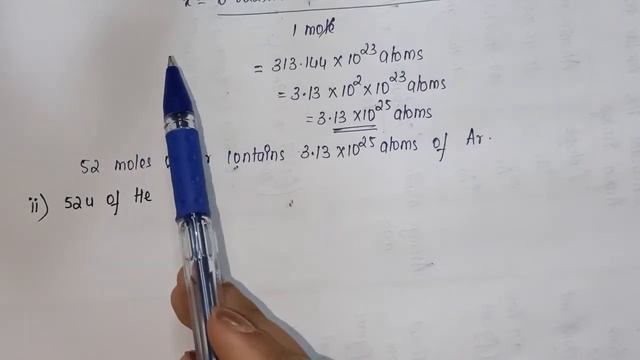 1 mole
= 313.144 × 10²³ atoms
= 3.13 × 10² × 10²³ atoms
= 3.13 × 10²⁵ atoms
52 moles contains 3.13 × 10²⁵ atoms of Ar.
ii) 52u of He